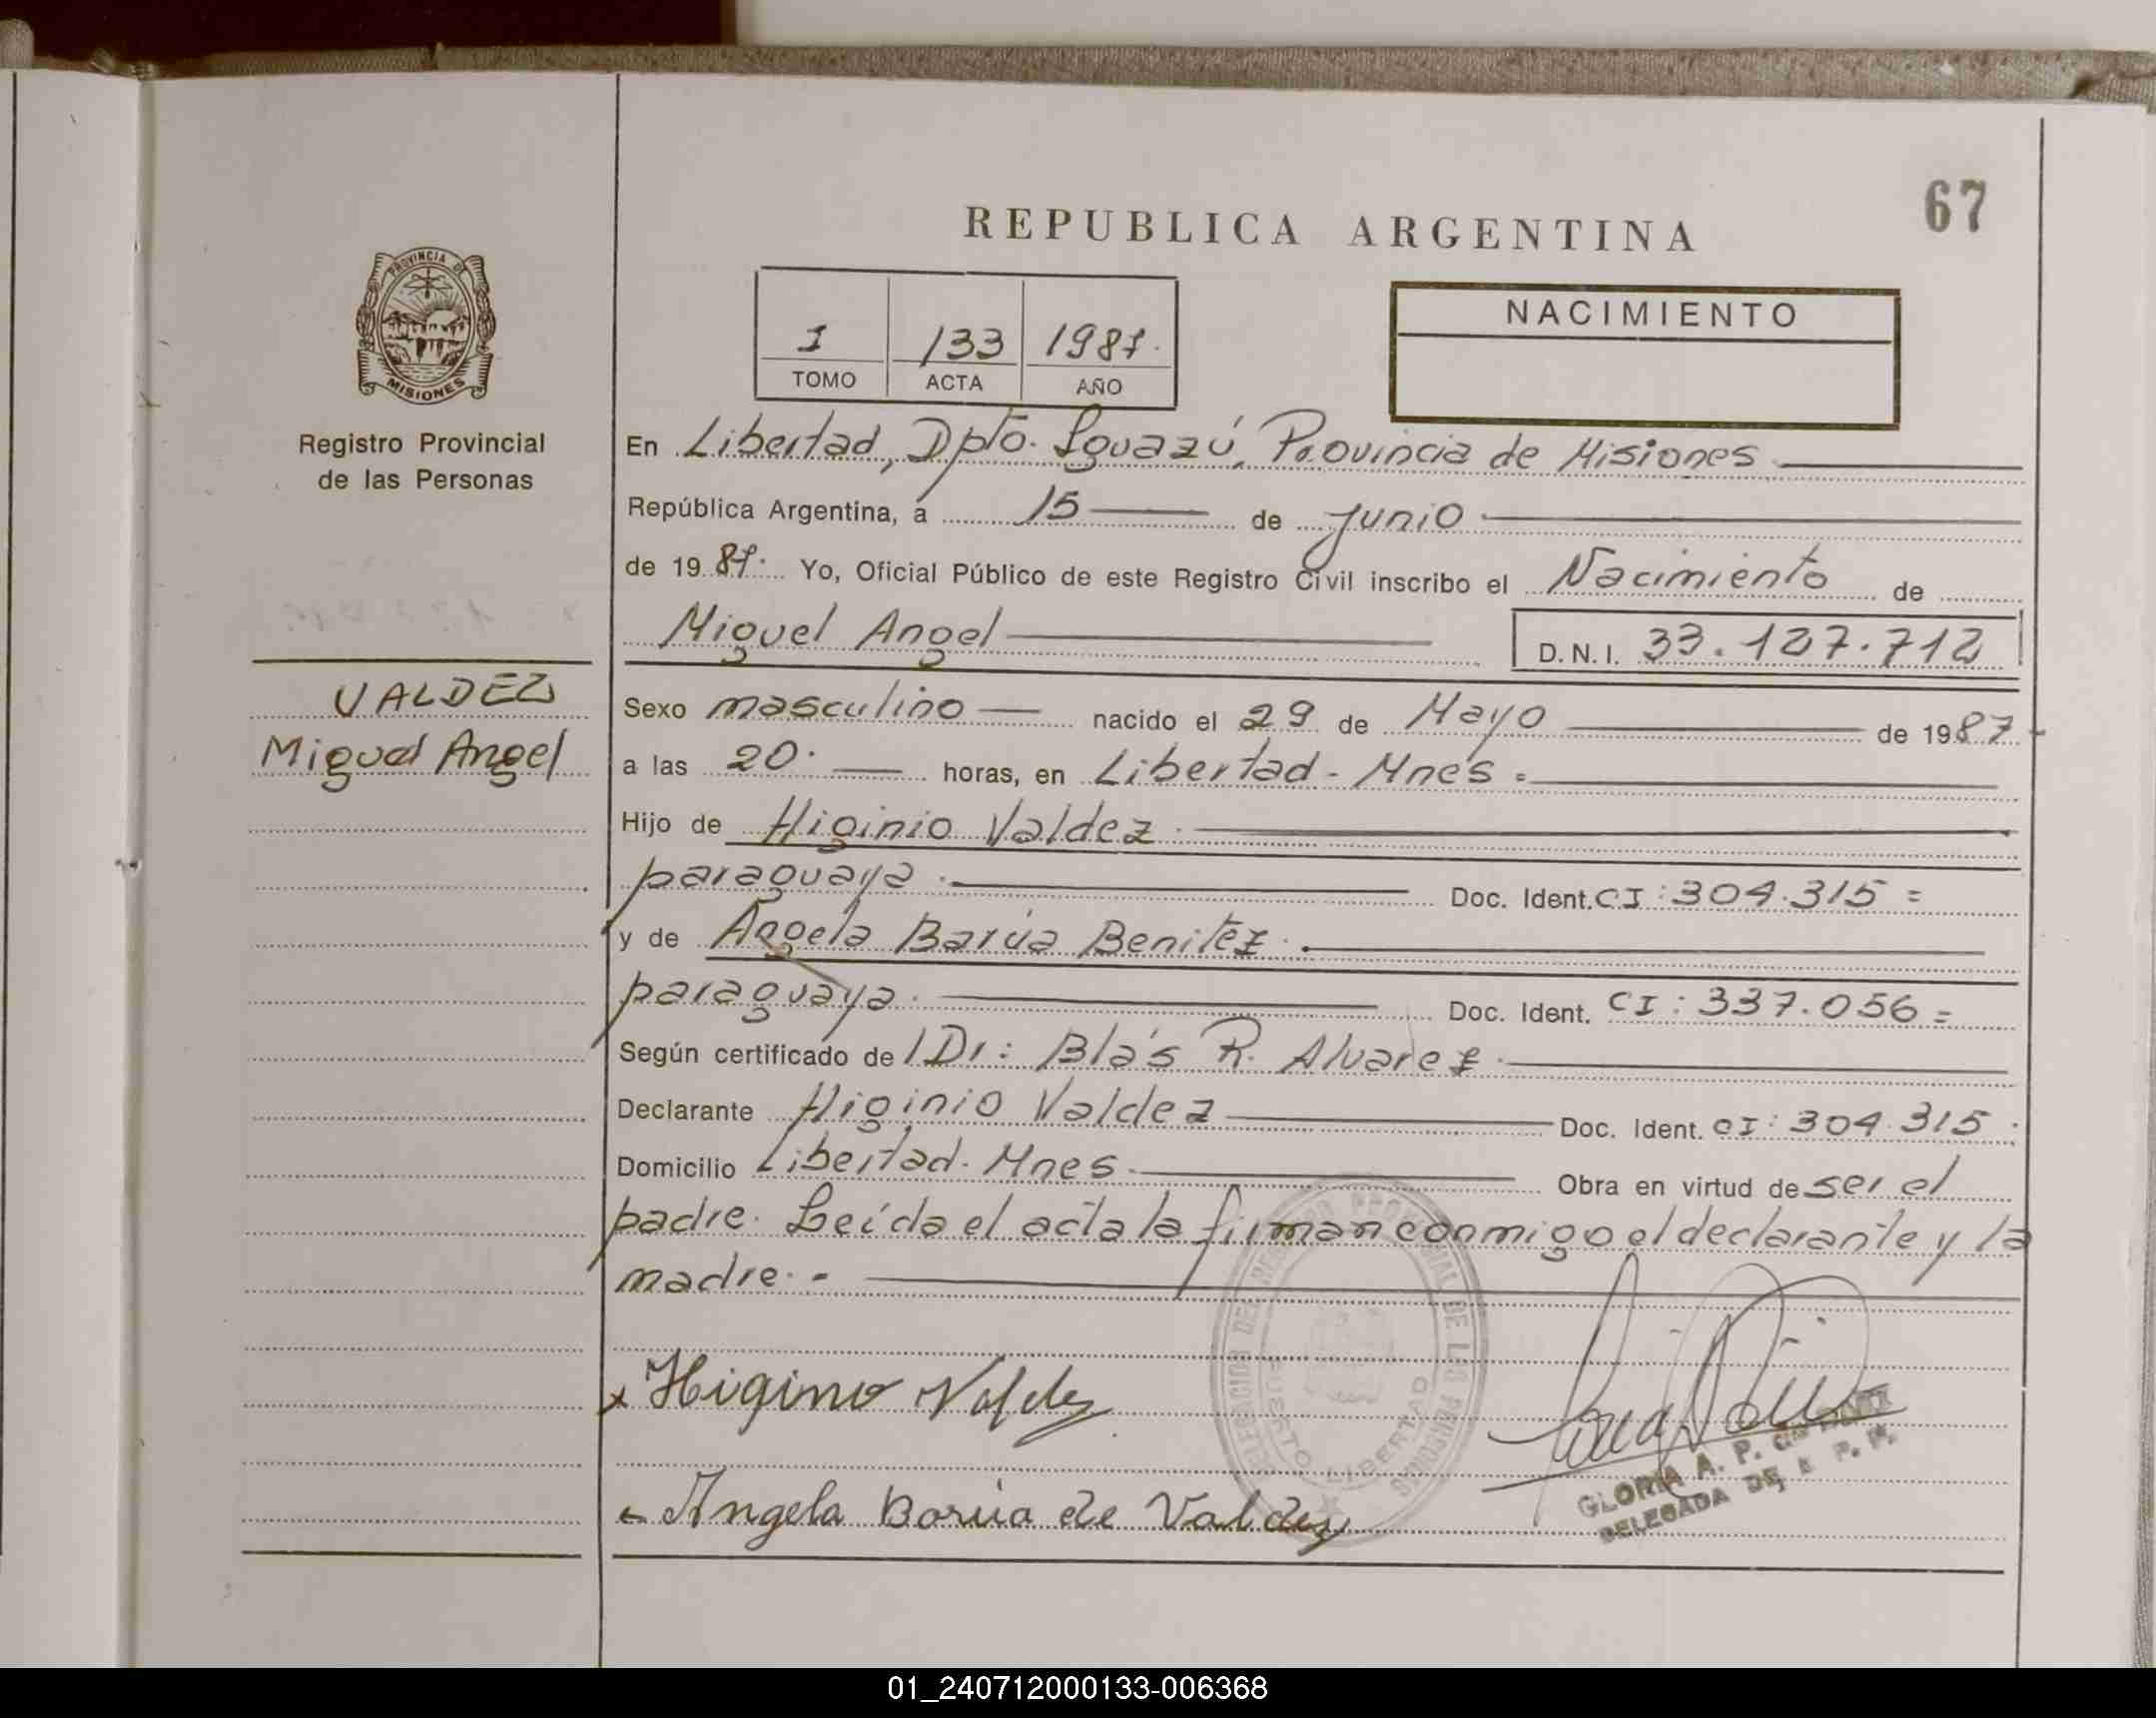 67
REPUBLICA ARGENTINA
PROVINCIA DE
MISIONES
Registro Provincial
de las Personas
VALDEZ
Miguel Angel
1 133 1987.
TOMO ACTA AÑO
NACIMIENTO
En Libertad, Dpto. Iguazú, Provincia de Misiones
República Argentina, a 15 de Junio
de 19 87. Yo, Oficial Público de este Registro Civil inscribo el Nacimiento de
Miguel Angel D.N.I. 33.127.712
Sexo masculino nacido el 29 de Mayo de 1987
a las 20. horas, en Libertad - Mnes.
Hijo de Higinio Valdez.
paraguaya. Doc. Ident. CI: 304.315 =
y de Angela Barúa Benitez.
paraguaya. Doc. Ident. CI: 337.056 =
Según certificado de Dr: Blás R. Alvarez.
Declarante Higinio Valdez Doc. Ident. CI: 304.315.
Domicilio Libertad. Mnes. Obra en virtud de ser el
padre. Leída el acta la firman conmigo el declarante y la
madre. -
x Higinio Valdez
Angela Barúa de Valdez
DELEGACION DEL REGISTRO PROVINCIAL DE LAS PERSONAS
PUERTO LIBERTAD
GLORIA A. P. de
DELEGADA DE R. P. P.
01_240712000133-006368